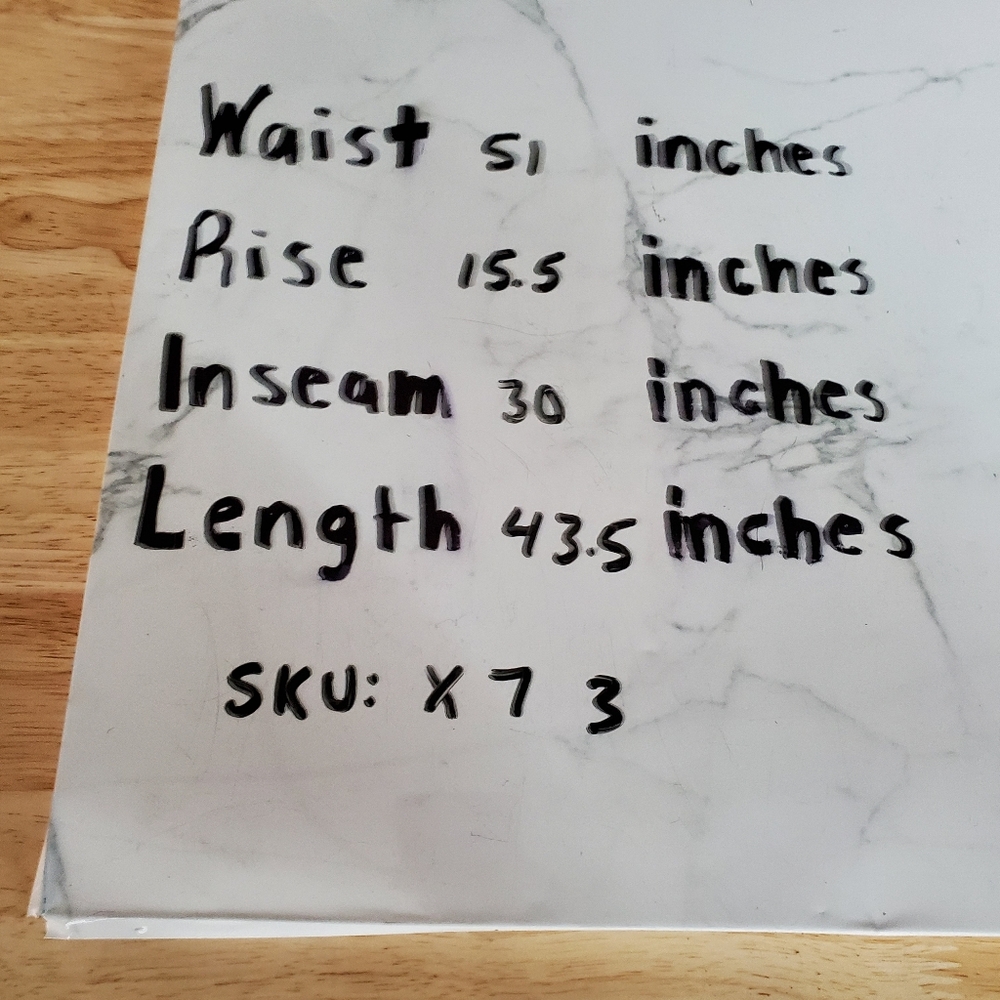 Waist 51 inches
Rise 15.5 inches
Inseam 30 inches
Length 43.5 inches
SKU: X 7 3